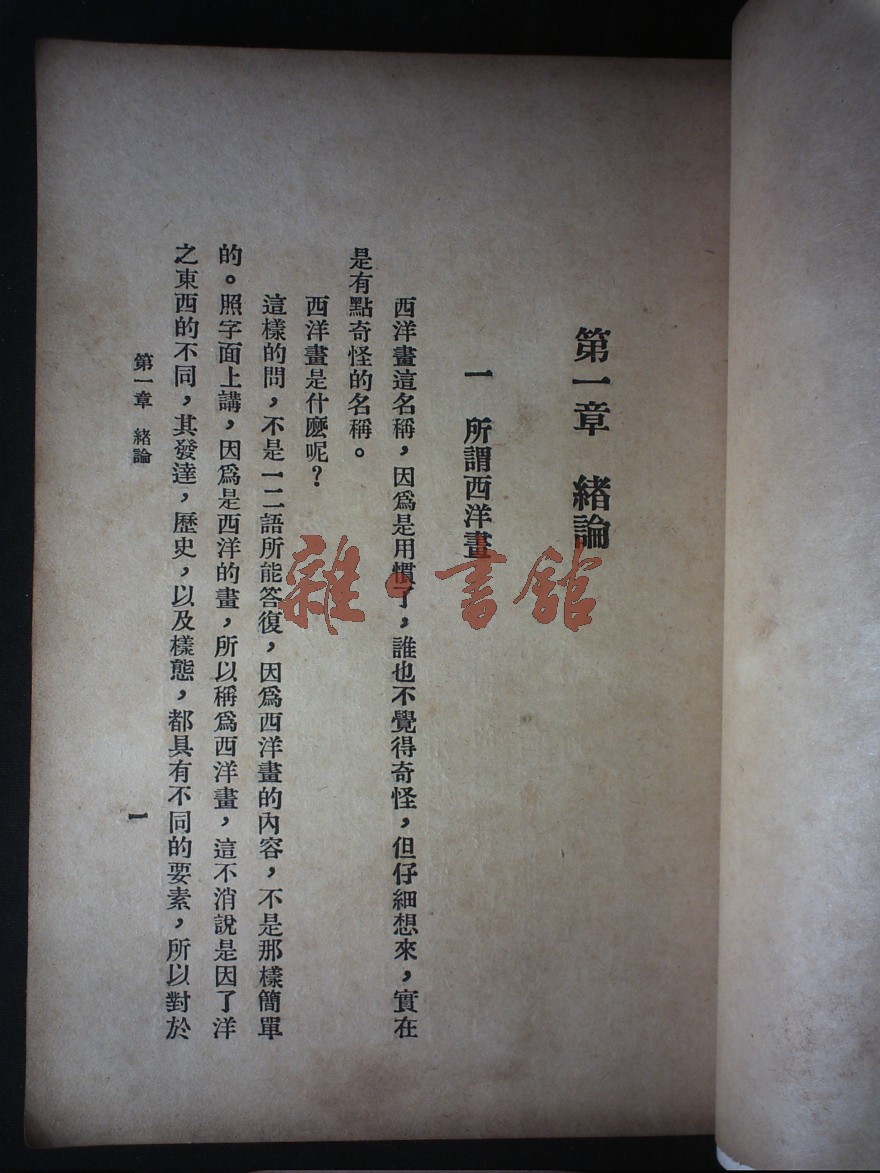 第一章　緒論
一　所謂西洋畫
西洋畫這名稱，因爲是用慣了，誰也不覺得奇怪，但仔細想來，實在
是有點奇怪的名稱。
西洋畫是什麼呢？
這樣的問，不是一二語所能答復，因爲西洋畫的內容，不是那樣簡單
的。照字面上講，因爲是西洋的畫，所以稱爲西洋畫，這不消說是因了洋
之東西的不同，其發達，歷史，以及樣態，都具有不同的要素，所以對於
第一章　緒論
一
雜·書館